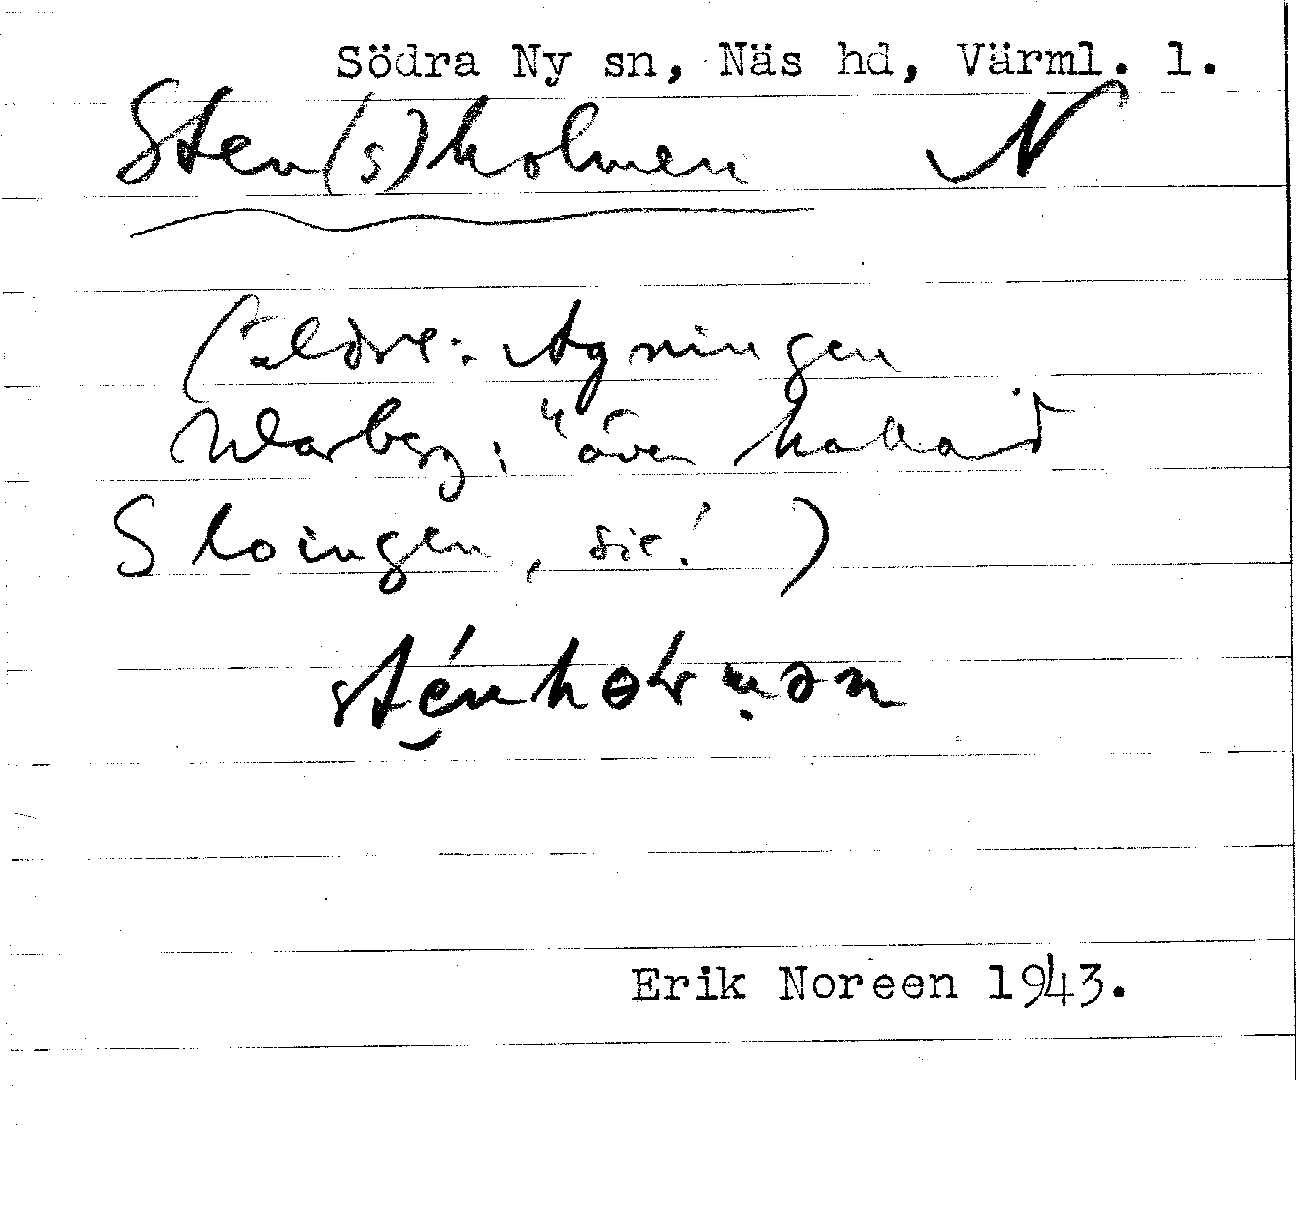 Södra Ny sn, Näs hd, Värml. l.
Sten(s)holmen N
(äldre: Agningen
Warberg: "även kallad
Sloingen, sic!)
Erik Noreen 1943.